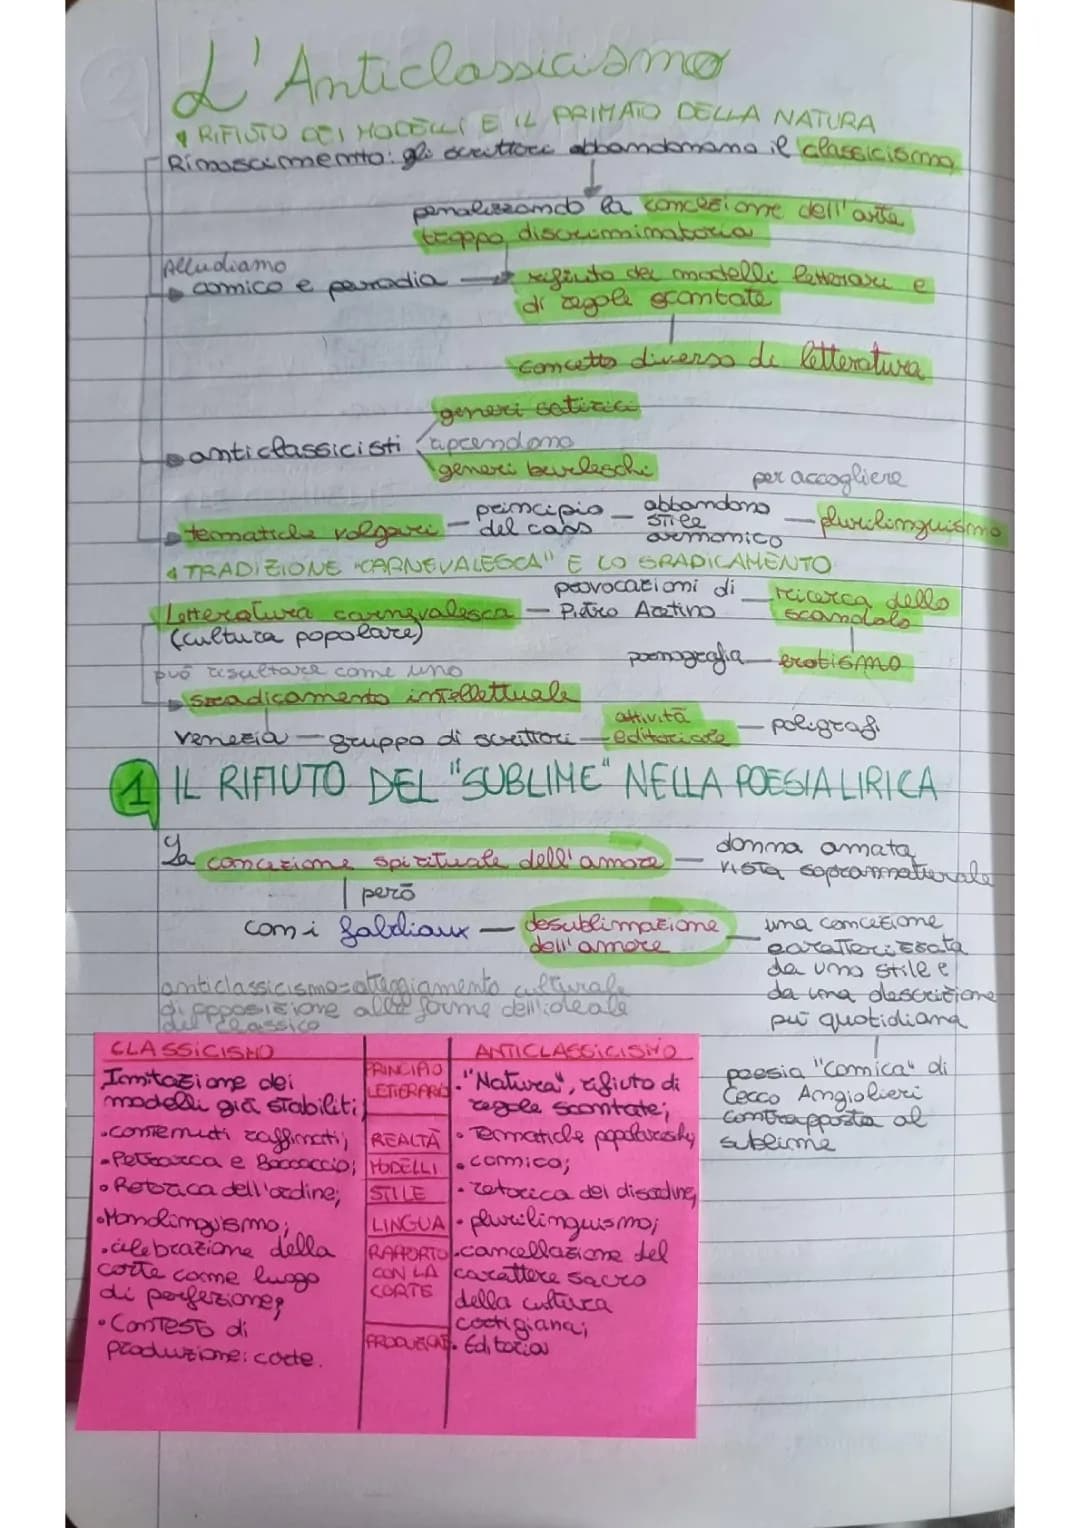 L'Anticlassicismo
RIFIUTO DEI MODELLI E IL PRIMATO DELLA NATURA
Rinascimento: gli scrittori abbandonano il classicismo
penalizzando la concezione dell'arte
troppo discriminatoria
Alludiamo
comico e parodia
rifiuto dei modelli letterari e
di regole scontate
concetto diverso di letteratura
generi satirici
anticlassicisti
aprendono
generi burleschi
per accogliere
tematiche volgari - principio del caos - abbandono stile armonico - plurilinguismo
TRADIZIONE "CARNEVALESCA" E LO SRADICAMENTO
Letteratura carnevalesca - provocazioni di Pietro Aretino - ricerca dello scandalo
(cultura popolare)
pornografia - erotismo
può risultare come uno
sradicamento intellettuale
Venezia - gruppo di scrittori - attività editoriale - poligrafi
1 IL RIFIUTO DEL "SUBLIME" NELLA POESIA LIRICA
La concezione spirituale dell'amore - donna amata vista soprannaturale
però
con i fabliaux - desublimazione dell'amore - una concezione
caratterizzata
da uno stile e
da una descrizione
più quotidiana
anticlassicismo=atteggiamento culturale
di opposizione alle forme dell'ideale
del classico
poesia "Comica" di
Cecco Angiolieri
contrapposta al
sublime
CLASSICISMO
Imitazione dei
modelli già stabiliti;
•contenuti raffinati;
•Petrarca e Boccaccio;
•Retorica dell'ordine;
•Monolinguismo;
•celebrazione della
corte come luogo
di perfezione;
•Contesto di
produzione: corte.
PRINCIPIO
LETTERARIO
REALTÀ
MODELLI
STILE
LINGUA
RAPPORTO
CON LA
CORTE
ANTICLASSICISMO
•"Natura", rifiuto di
regole scontate;
•Tematiche popolaresky
•comico;
•retorica del disordine,
•plurilinguismo;
•cancellazione del
carattere sacro
della cultura
cortigiana;